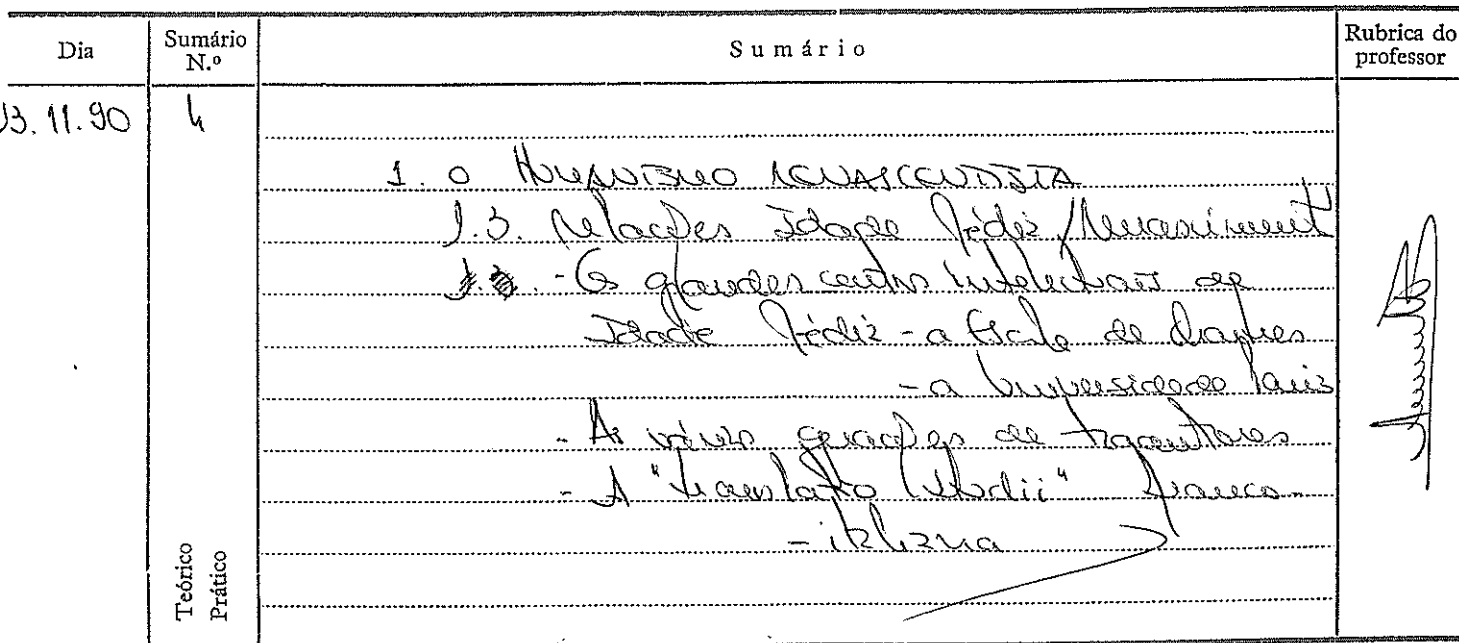 Dia
Sumário N.º
Sumário
Rubrica do professor
13.11.90
4
1. O HUMANISMO RENASCENTISTA
1.3. Relações Idade Média / Renascimento
- Os grandes centros intelectuais da
Idade Média - a Escola de Chartres
- a Universidade Paris
- As várias gerações de tradutores
- A "translatio studii" franco-
- italiana
Teórico
Prático